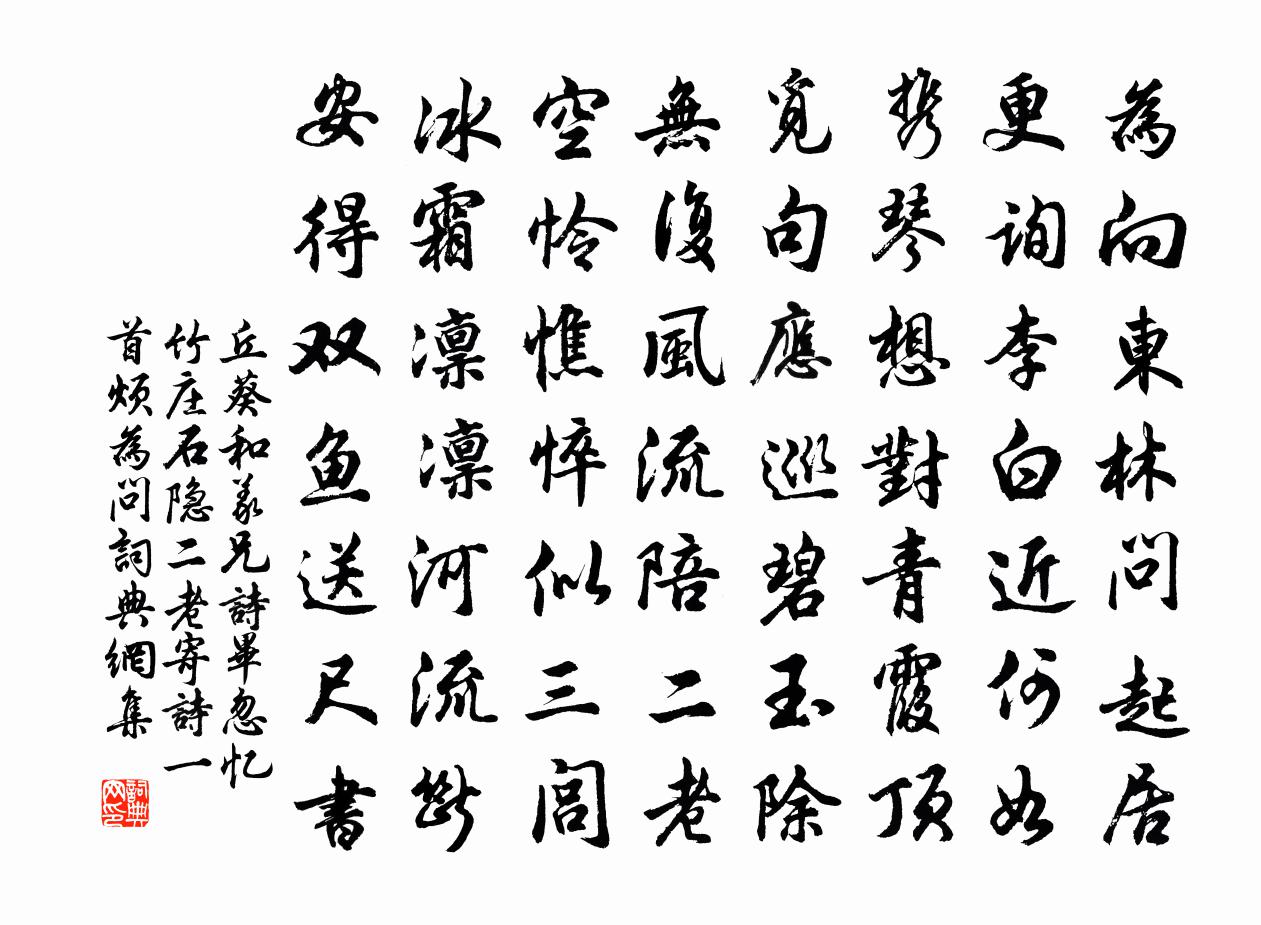 為向東林問起居
更詢李白近何如
携琴想對青霞頂
覓句應巡碧玉除
無復風流陪二老
空怜憔悴似三閭
冰霜凛凛河流斷
安得双鱼送尺書
丘葵和義兄詩畢忽忆
竹庄石隐二老寄詩一
首烦為问詞典網集
詞典
网印